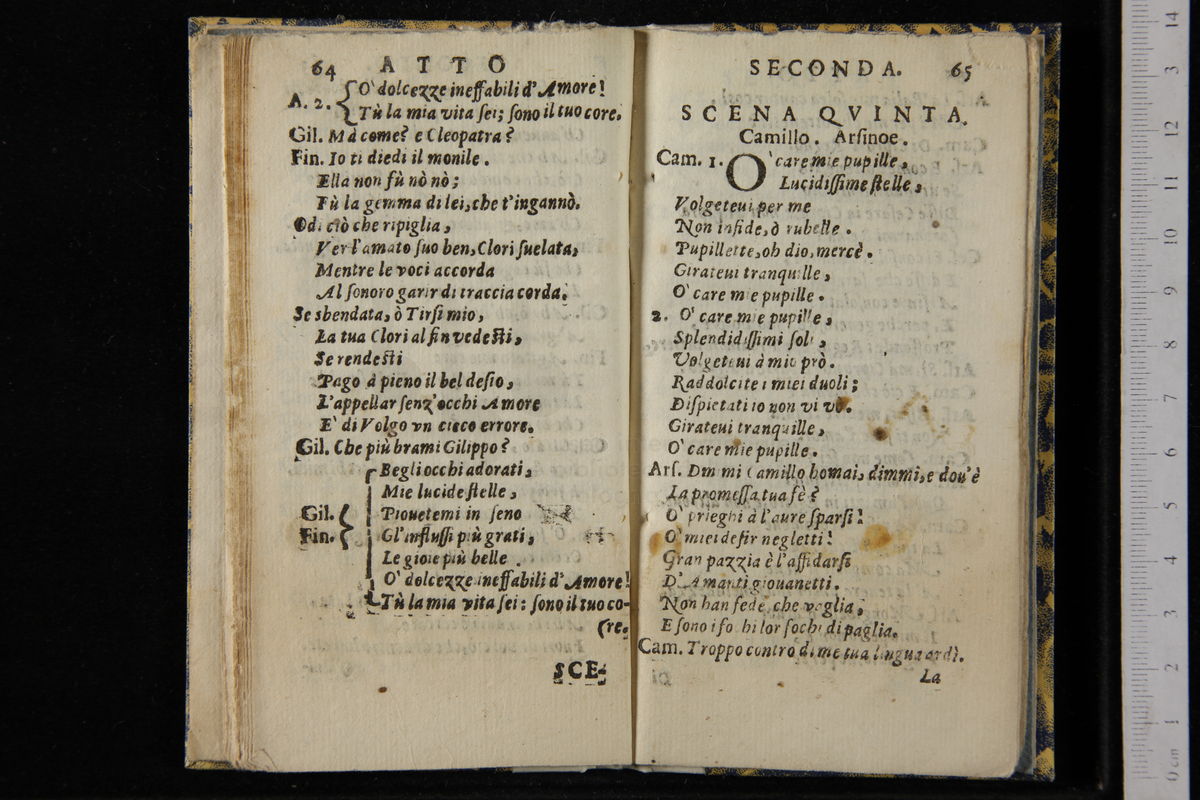 64 ATTO
A. 2. O' dolcezze ineffabili d'Amore!
Tù la mia vita sei; sono il tuo core.
Gil. Mà come? e Cleopatra?
Fin. Io ti diedi il monile.
Ella non fù nò nò;
Fù la gemma di lei, che t'ingannò.
Odi ciò che ripiglia,
Ver l'amato suo ben, Clori suelata,
Mentre le voci accorda
Al sonoro garir di traccia corda.
Se sbendata, ò Tirsi mio,
La tua Clori al fin vedesti,
Se rendesti
Pago à pieno il bel desio,
L'appellar senz'occhi Amore
E' di Volgo vn cieco errore.
Gil. Che più brami Gilippo?
Begli occhi adorati,
Mie lucide stelle,
Gil. Piouetemi in seno
Fin. Gl'influssi più grati,
Le gioie più belle.
O' dolcezze ineffabili d'Amore!
Tù la mia vita sei: sono il tuo co-
(re.
SCE-
SECONDA. 65
SCENA QVINTA.
Camillo. Arsinoe.
Cam. 1. O' care mie pupille,
Lucidissime stelle,
Volgeteui per me
Non infide, ò rubelle.
Pupillette, oh dio, mercè.
Girateui tranquille,
O' care mie pupille.
2. O' care mie pupille,
Splendidissimi soli,
Volgeteui à mio prò.
Raddolcite i miei duoli;
Dispietati io non vivo.
Girateui tranquille,
O' care mie pupille.
Ars. Dimmi Camillo homai, dimmi, e dou'è
La promessa tua fè?
O' prieghi à l'aure sparsi!
O' miei desir negletti!
Gran pazzia è l'affidarsi
D'Amanti giouanetti.
Non han fede che vaglia,
E sono i fochi lor fochi di paglia.
Cam. Troppo contro di me tua lingua ardì.
La